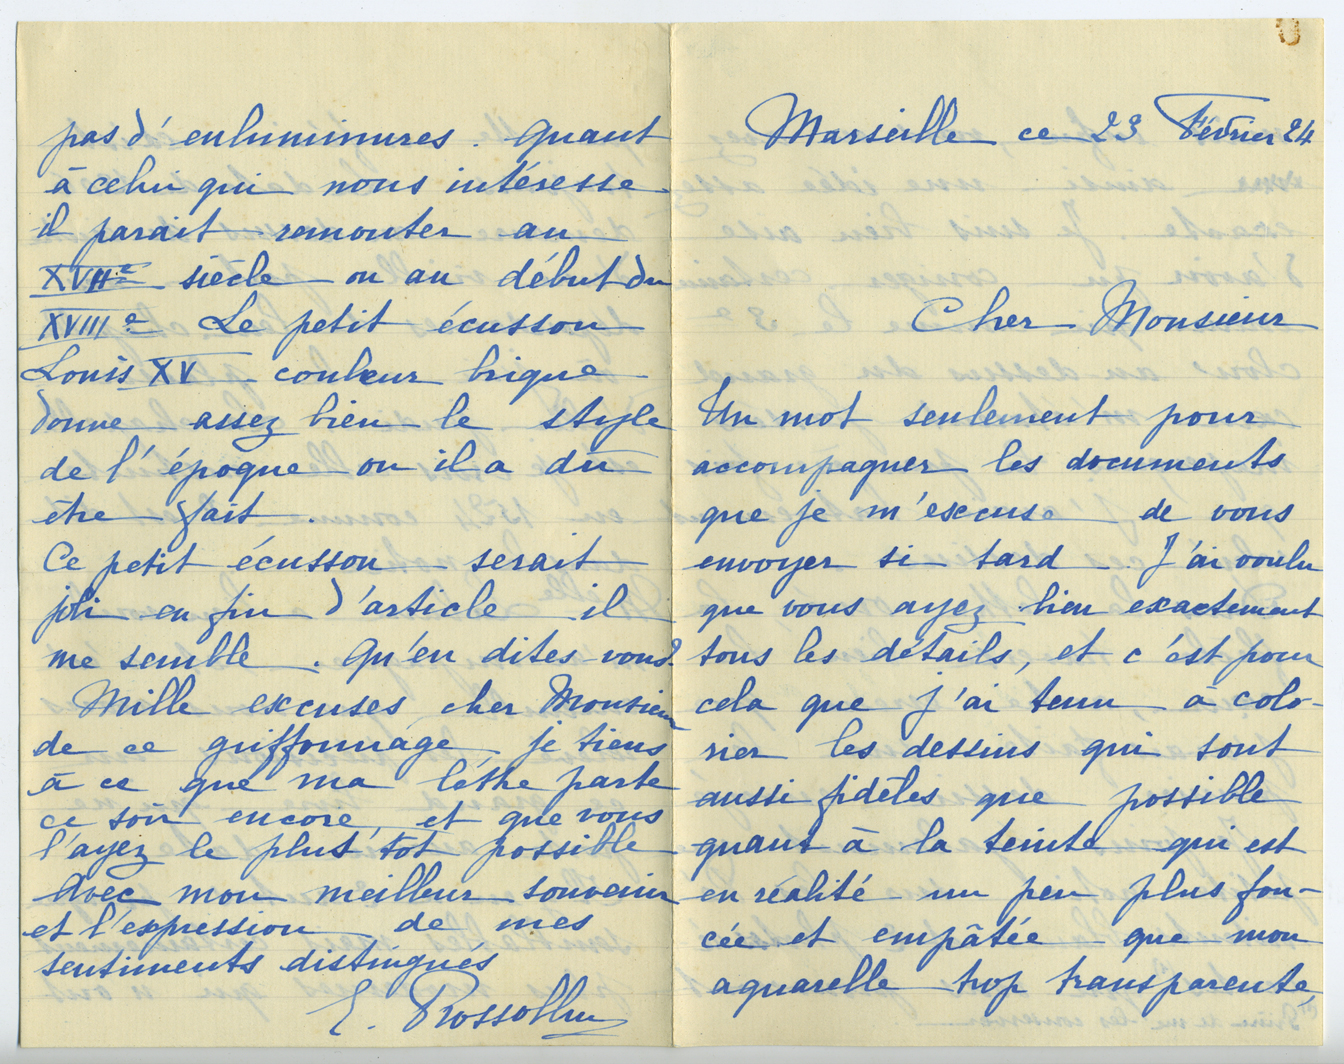 Marseille ce 23 Février 24
Cher Monsieur
Un mot seulement pour
accompagner les documents
que je m'excuse de vous
envoyer si tard. J'ai voulu
que vous ayez bien exactement
tous les détails, et c'est pour
cela que j'ai tenu à colo-
rier les dessins qui sont
aussi fidèles que possible
quant à la teinte qui est
en réalité un peu plus fon-
cée et empâtée que mon
aquarelle trop transparente
pas d'enluminures. Quant
à celui qui nous intéresse
il parait remonter au
XVIIe siècle ou au début du
XVIIIe Le petit écusson
Louis XV couleur brique
donne assez bien le style
de l'époque ou il a dû
être fait.
Ce petit écusson serait
joli en fin d'article il
me semble. Qu'en dites-vous?
Mille excuses cher Monsieur
de ce griffonnage, je tiens
à ce que ma lettre parte
ce soir encore, et que vous
l'ayez le plus tôt possible
Avec mon meilleur souvenir
et l'expression de mes
sentiments distingués
E.